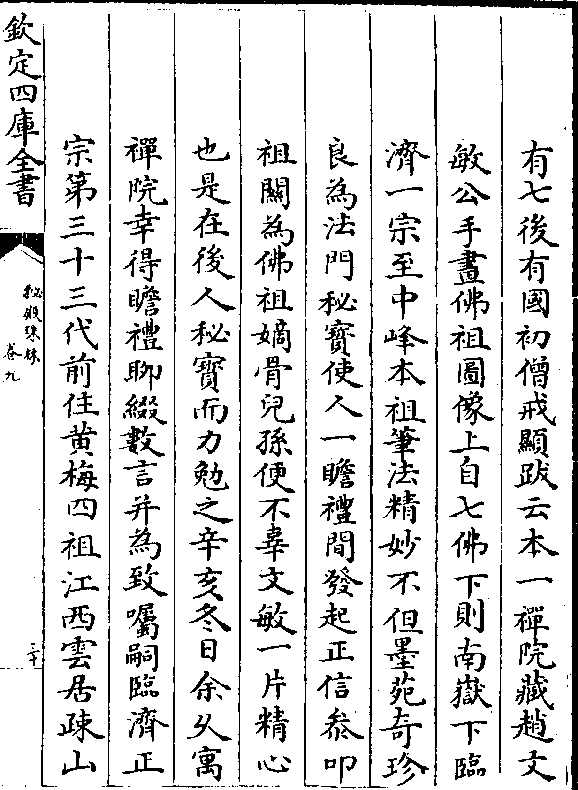 有七後有國初僧戒顯跋云本一禪院藏趙文
敏公手畫佛祖圖像上自七佛下則南嶽下臨
濟一宗至中峰本祖筆法精妙不但墨苑奇珍
良為法門秘寶使人一瞻禮間發起正信叅叩
祖關為佛祖嫡骨兒孫便不辜文敏一片精心
也是在後人秘寶而力勉之辛亥冬日余乆寓
禪院幸得瞻禮聊綴數言并為致囑嗣臨濟正
宗第三十三代前住黄梅四祖江西雲居疎山
欽定四庫全書
秘殿珠林
卷九
二十